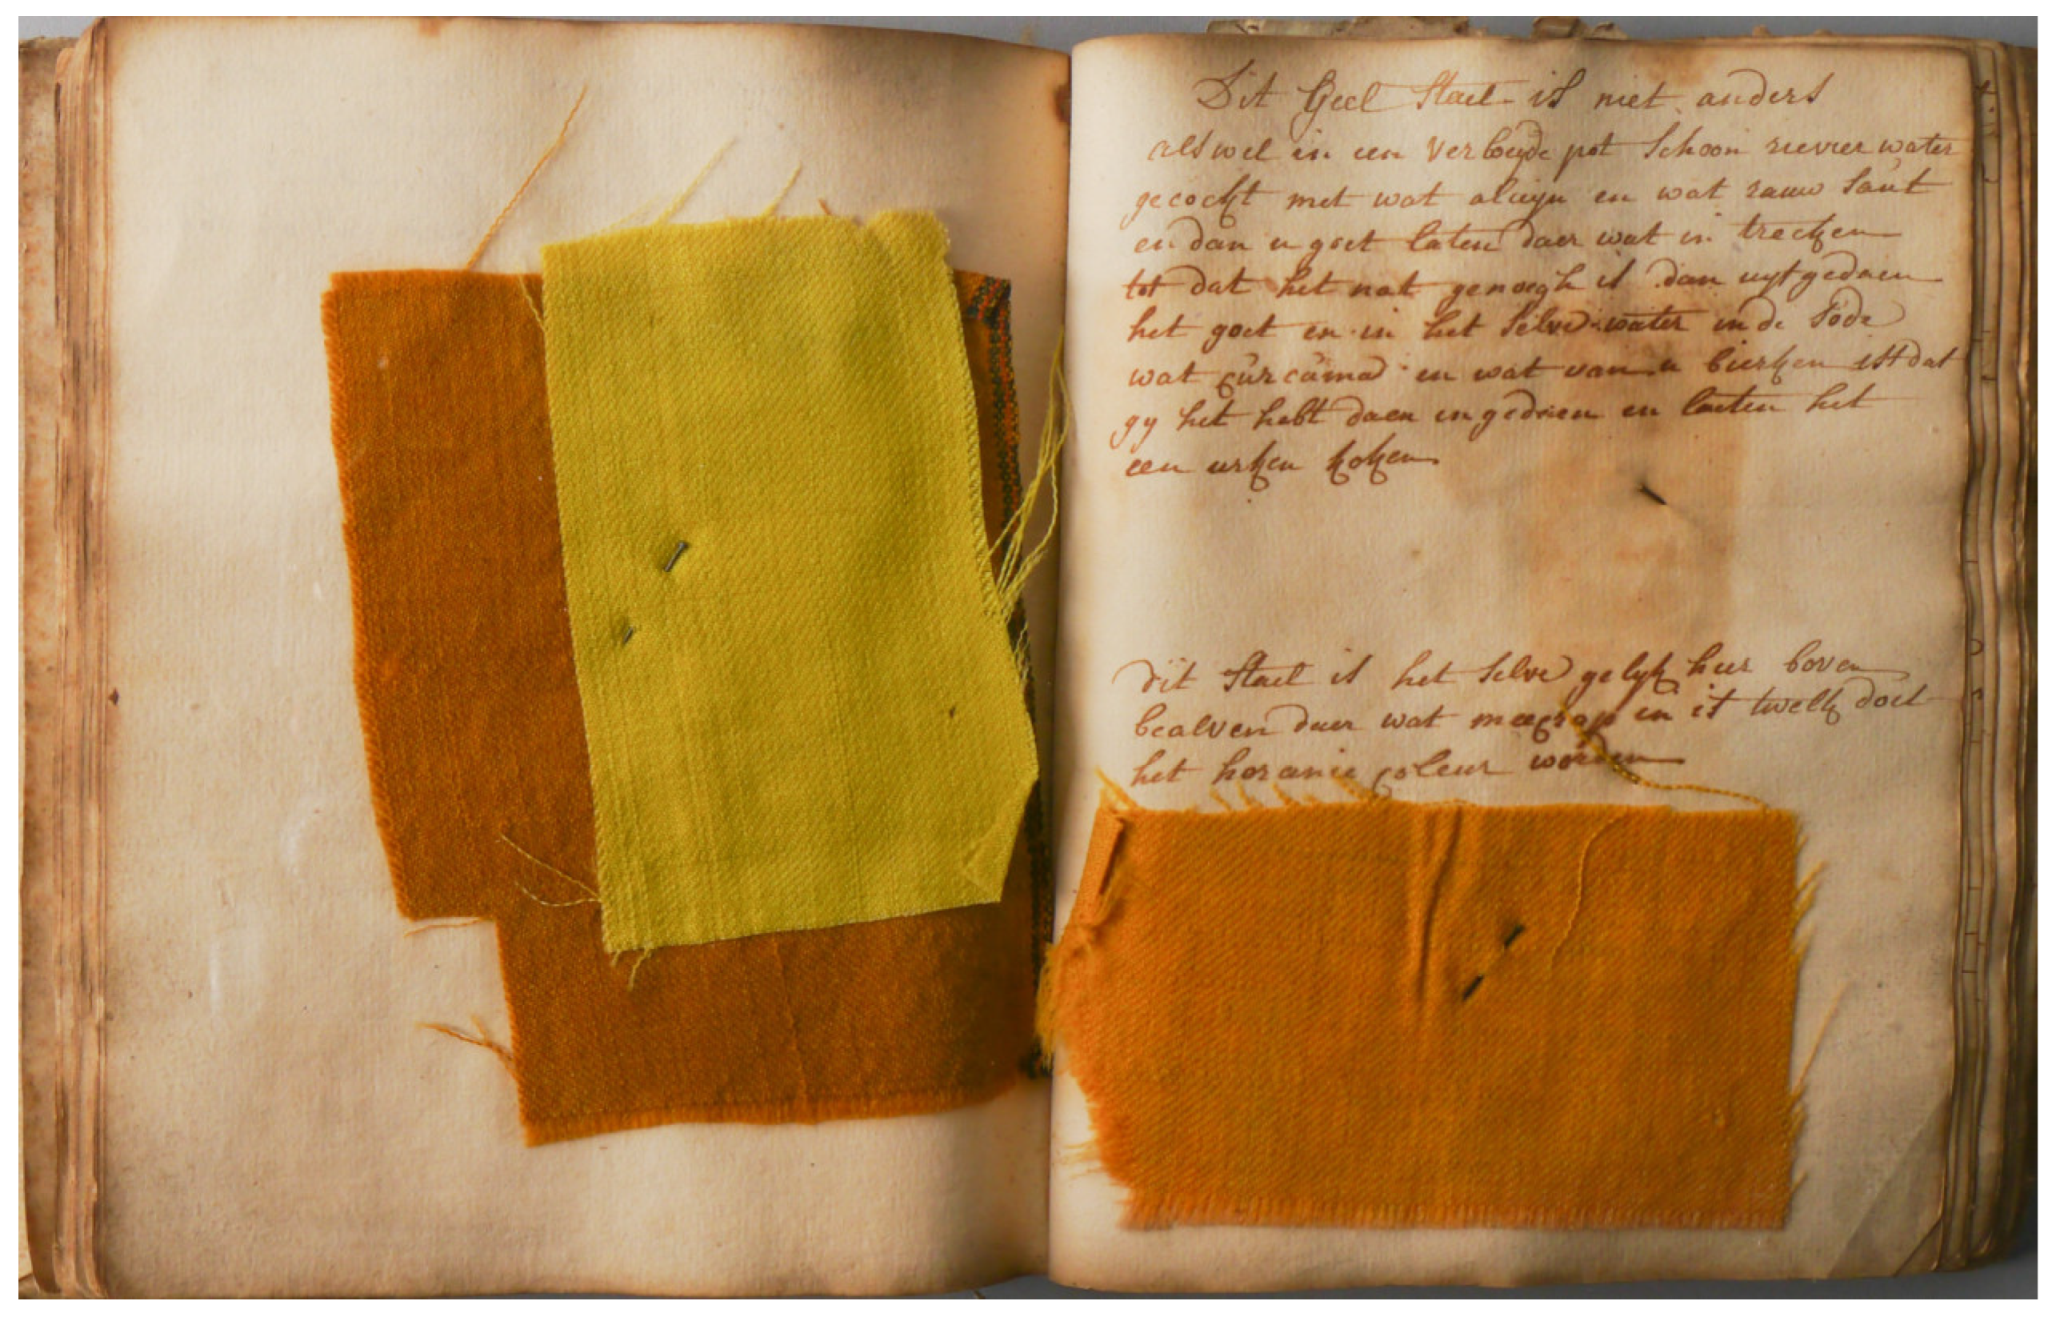 Dit Geel Stael is niet anders
als wel in een Verloyde pot Schoon rievier water
gecockt met wat aluyn en wat rauw Saut
en dan u goet laten daer wat in trecken
tot dat het nat genoegh is dan uytgedaen
het goet en in het Selve water in de Sode
wat curcuma en wat van u bierken ist dat
gy het hebt daer ingedaen en laeten het
een urken koken
dit Stael is het Selve gelyk hier boven
bealven daer wat meecrap in is twelk doet
het horanie coleur worden